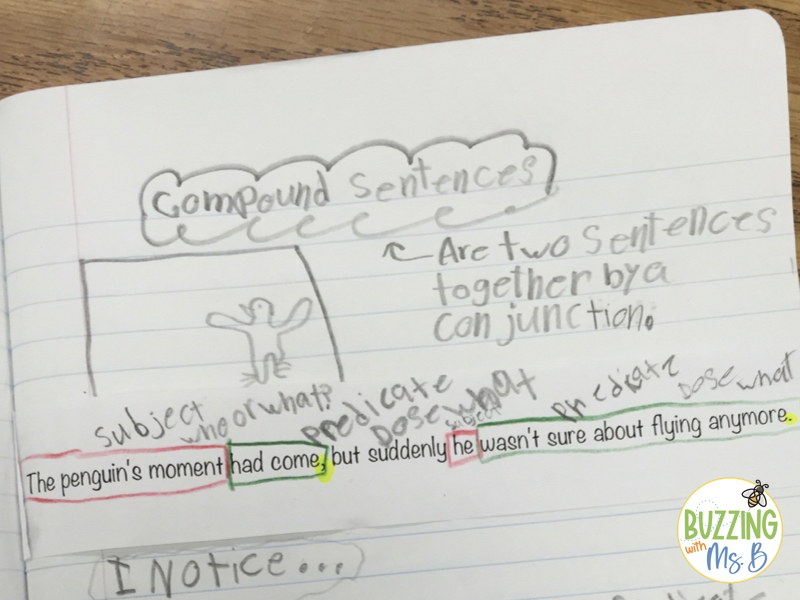 Compound Sentences
Are two sentences
together by a
conjunction.
subject who or what? predicate dose what subject predicate dose what
The penguin's moment had come, but suddenly he wasn't sure about flying anymore.
I Notice...
BUZZING
with Ms. B